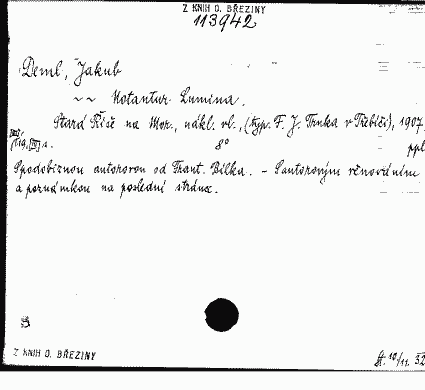 Z KNIH O. BŘEZINY
113942
Deml, Jakub
~ ~ Notantur Lumina.
Stará Říše na Mor., nákl. vl., (typ. F. J. Trnka v Třebíči), 1907.
8° ppl
119, [III] s.
Spodobiznou autorovou od Frant. Bílka. – S autorovým věnováním
a poznámkou na poslední stránce.
Z KNIH O. BŘEZINY
10/11. 52